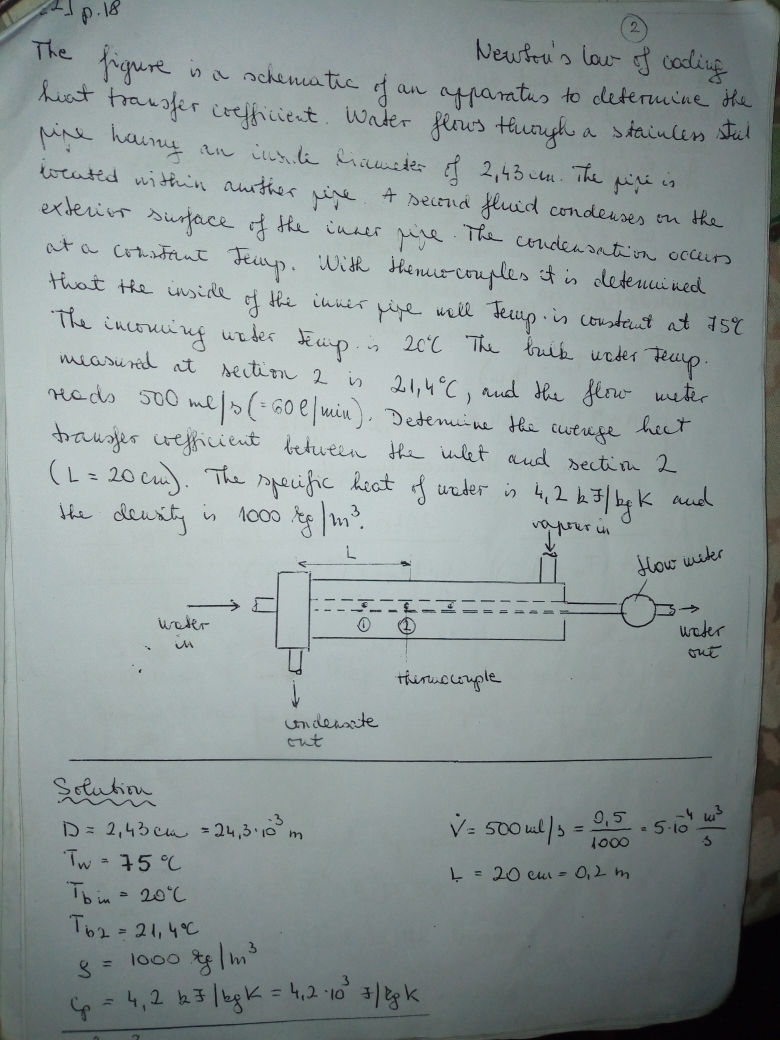 p.18
②
Newton's law of cooling
The figure is a schematic of an apparatus to determine the
heat transfer coefficient. Water flows through a stainless steel
pipe having an inside diameter of 2,43 cm. The pipe is
located within another pipe. A second fluid condenses on the
exterior surface of the inner pipe. The condensation occurs
at a constant temp. With thermocouples it is determined
that the inside of the inner pipe wall temp. is constant at 75°C
The incoming water temp. is 20°C The bulk water temp.
measured at section 2 is 21,4°C, and the flow meter
reads 500 ml/s (=60 l/min). Determine the average heat
transfer coefficient between the inlet and section 2
(L = 20 cm). The specific heat of water is 4,2 kJ/kgK and
the density is 1000 kg/m³.
vapour in
L
flow meter
water in
① ②
water out
thermocouple
condensate out
Solution
D = 2,43 cm = 24,3·10⁻³ m
V̇ = 500 ml/s = 0,5/1000 = 5·10⁻⁴ m³/s
Tw = 75 °C
L = 20 cm = 0,2 m
Tb in = 20°C
Tb2 = 21,4°C
ρ = 1000 kg/m³
cp = 4,2 kJ/kgK = 4,2·10³ J/kgK